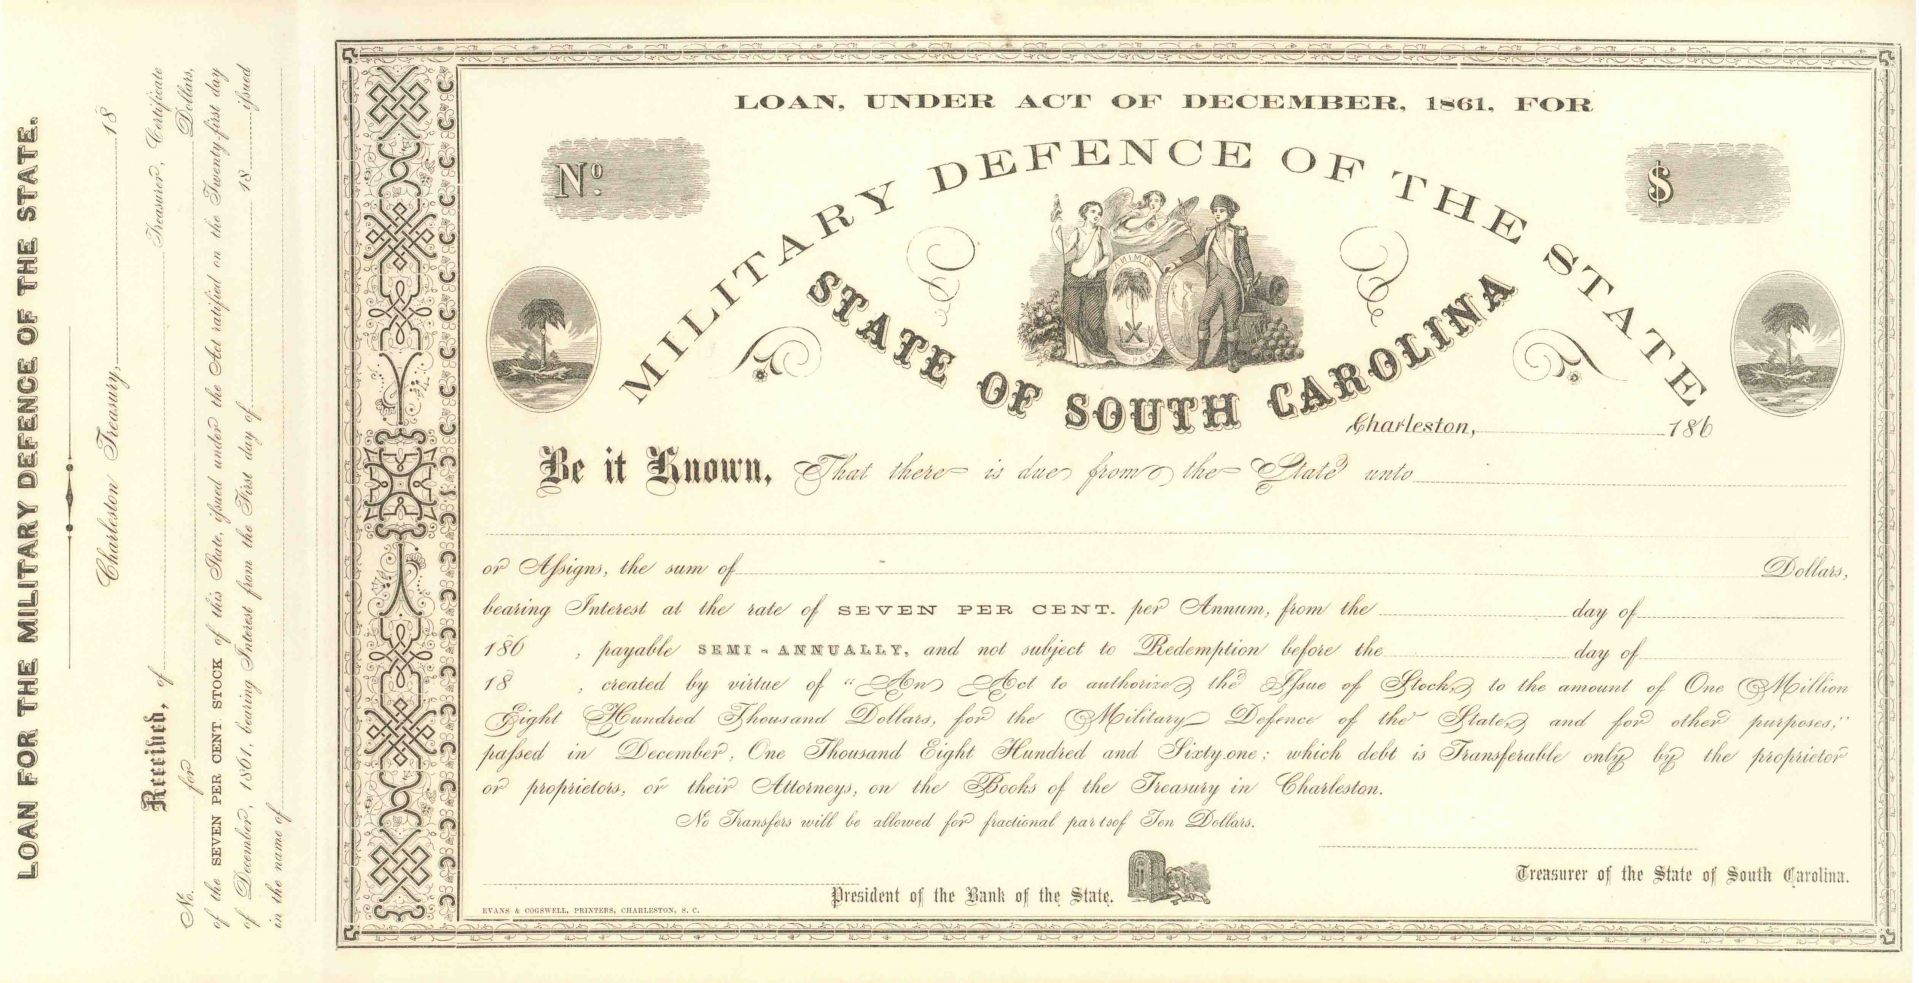 LOAN FOR THE MILITARY DEFENCE OF THE STATE.
Charleston Treasury, 18
Received, of Treasurer, Certificate
No. for Dollars,
of the SEVEN PER CENT STOCK of this State, issued under the Act ratified on the Twenty-first day
of December, 1861, bearing Interest from the First day of 18 issued
in the name of
LOAN, UNDER ACT OF DECEMBER, 1861, FOR
MILITARY DEFENCE OF THE STATE
No.
$
STATE OF SOUTH CAROLINA
Charleston, 186
Be it Known, That there is due from the State unto
or Assigns, the sum of Dollars,
bearing Interest at the rate of SEVEN PER CENT. per Annum, from the day of
186 , payable SEMI-ANNUALLY, and not subject to Redemption before the day of
18 , created by virtue of "An Act to authorize the Issue of Stock, to the amount of One Million
Eight Hundred Thousand Dollars, for the Military Defence of the State, and for other purposes,"
passed in December, One Thousand Eight Hundred and Sixty-one; which debt is Transferable only by the proprietor
or proprietors, or their Attorneys, on the Books of the Treasury in Charleston.
No Transfers will be allowed for fractional par tsof Ten Dollars.
Treasurer of the State of South Carolina.
President of the Bank of the State.
EVANS & COGSWELL, PRINTERS, CHARLESTON, S. C.